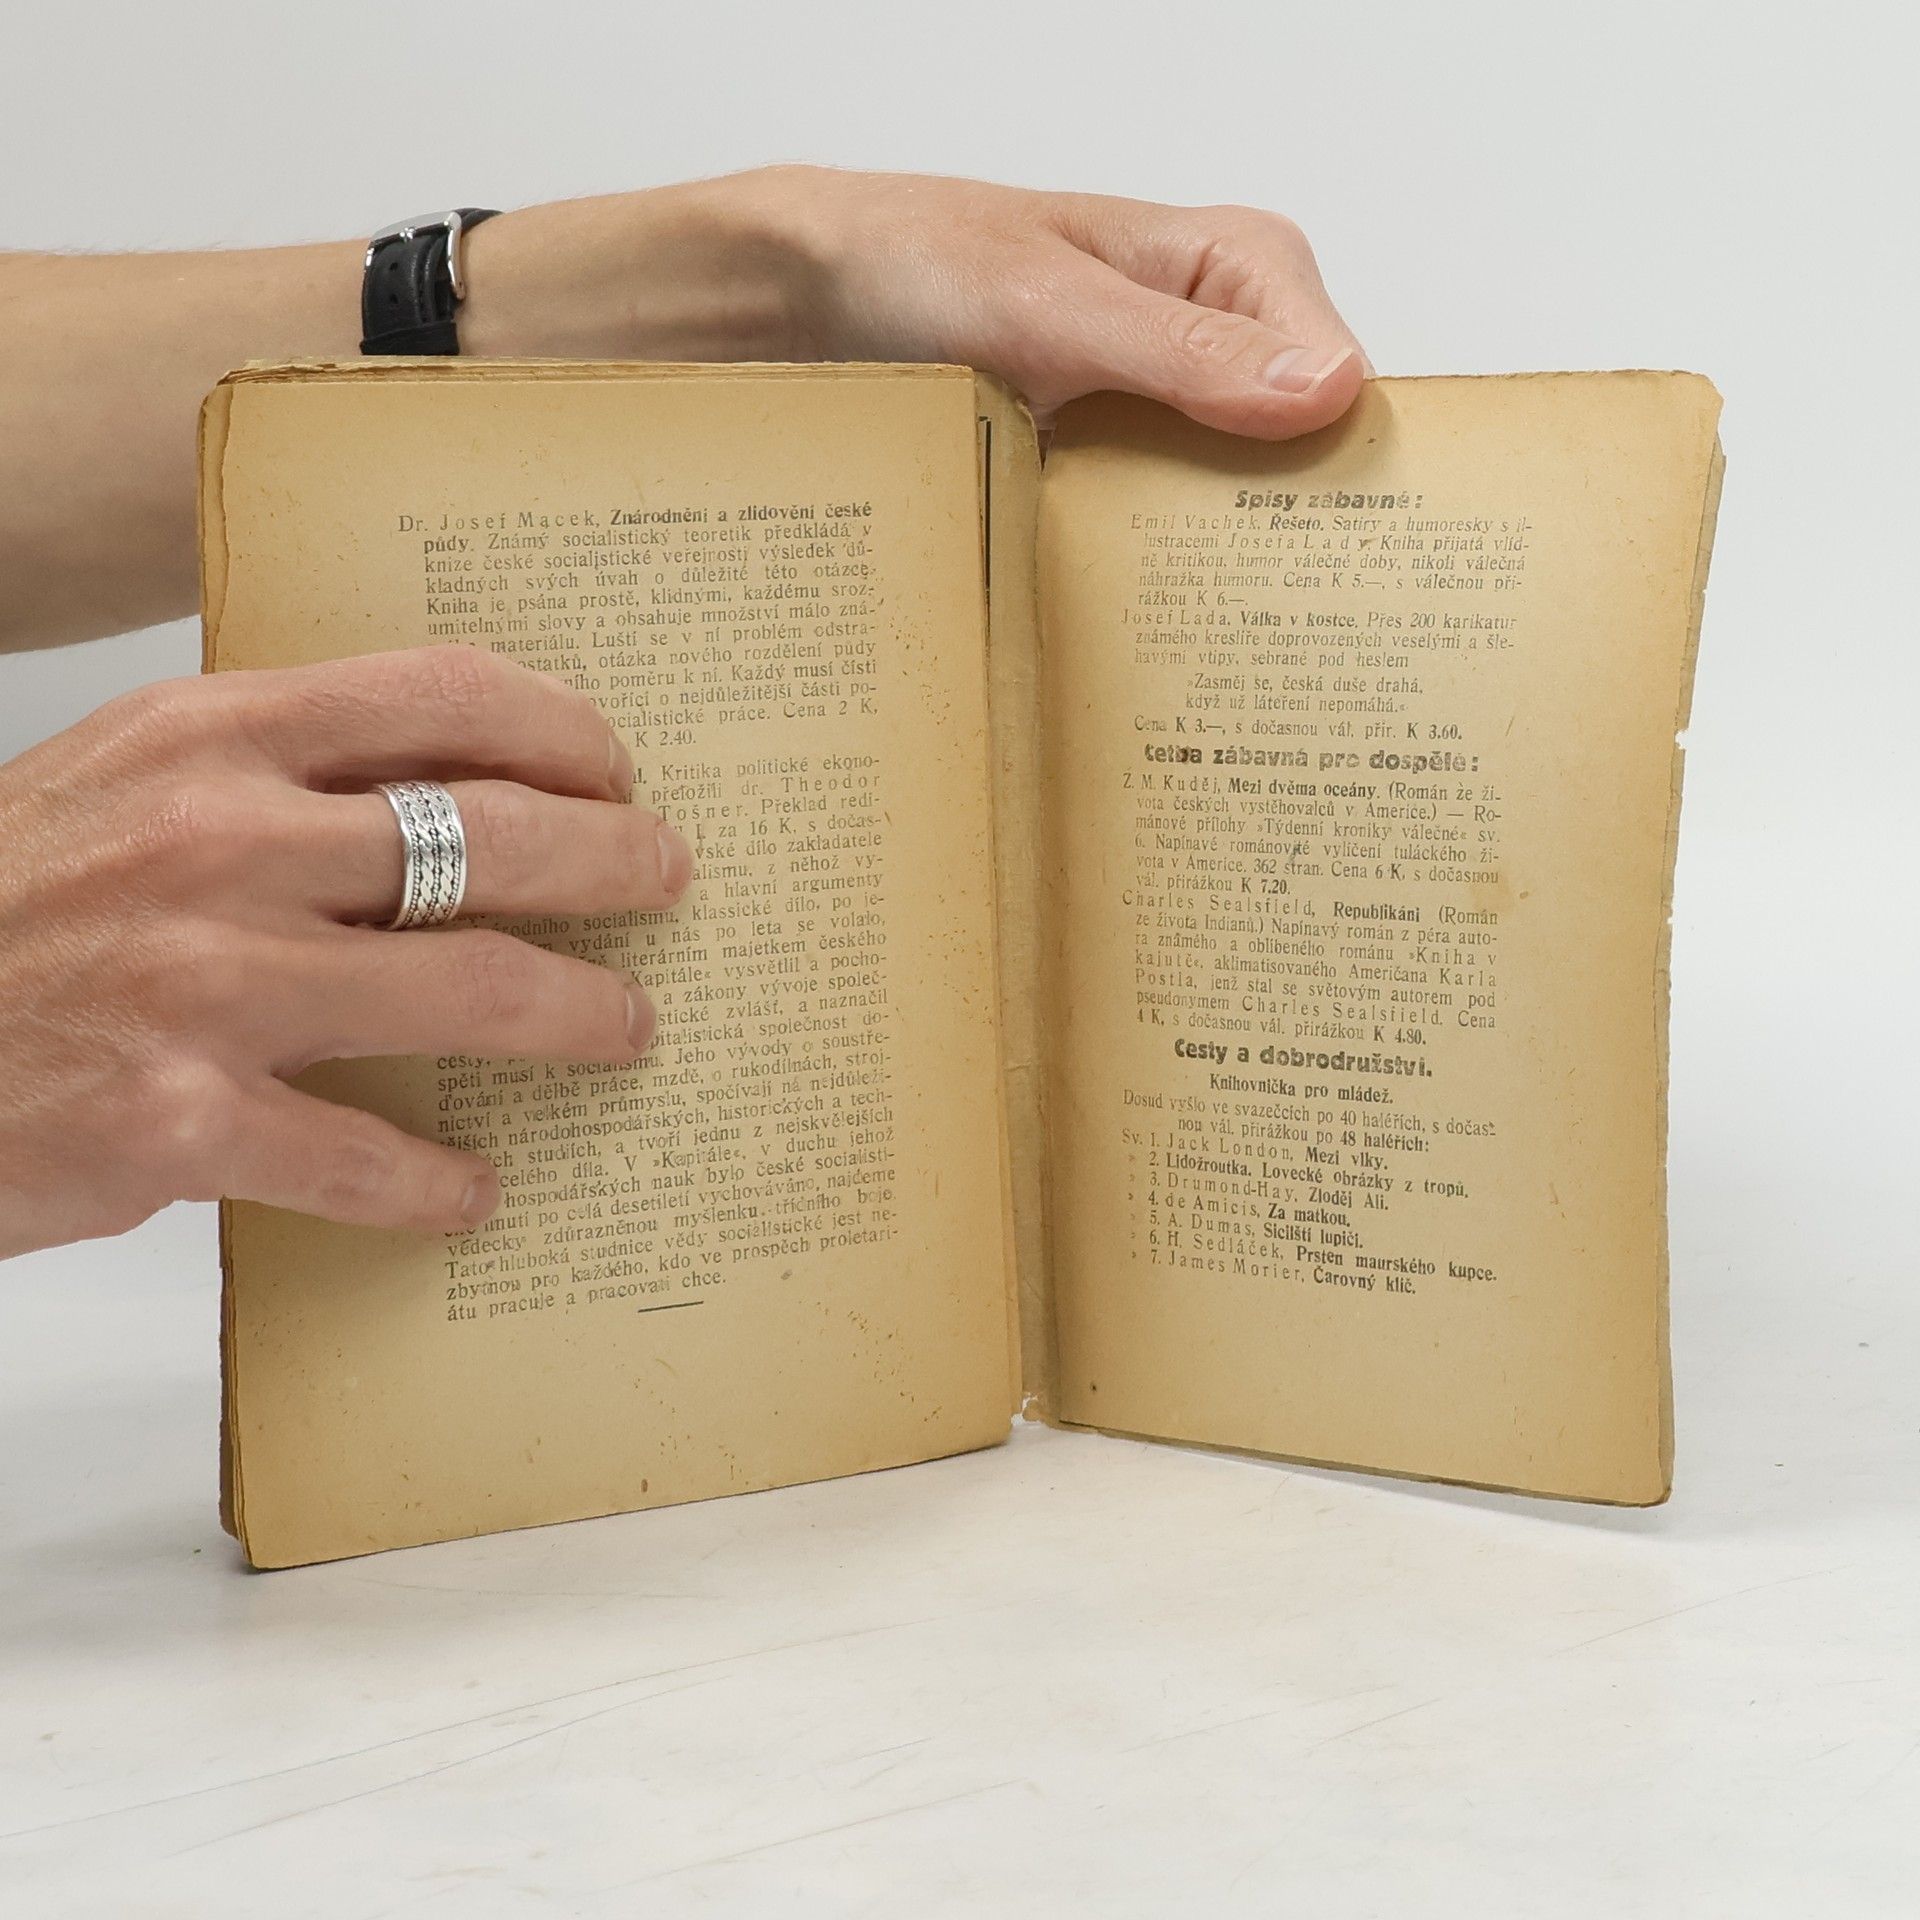 Dr. Josef Macek, Znárodnění a zlidovění české
půdy. Známý socialistický teoretik předkládá v
knize české socialistické veřejnosti výsledek dů-
kladných svých úvah o důležité této otázce.
Kniha je psána prostě, klidnými, každému sroz-
umitelnými slovy a obsahuje množství málo zná-
materiálu. Luští se v ní problém odstra-
ostatků, otázka nového rozdělení půdy
ního poměru k ní. Každý musí čísti
ovořící o nejdůležitější části po-
ocialistické práce. Cena 2 K,
K 2.40.
Kritika politické ekono-
přeložili dr. Theodor
Tošner. Překlad redi-
I. za 16 K, s dočas-
vské dílo zakladatele
alismu, z něhož vy-
a hlavní argumenty
árodního socialismu, klassické dílo, po je-
vydání u nás po leta se volalo,
literárním majetkem českého
Kapitále« vysvětlil a pocho-
a zákony vývoje společ-
stické zvlášť, a naznačil
pitalistická společnost do-
cesty,
spěti musí k socialismu. Jeho vývody o soustře-
ďování a dělbě práce, mzdě, o rukodílnách, stroj-
nictví a velkém průmyslu, spočívají na nejdůleži-
tějších národohospodářských, historických a tech-
ých studiích, a tvoří jednu z nejskvělejších
celého díla. V »Kapitále«, v duchu jehož
hospodářských nauk bylo české socialisti-
hnutí po celá desetiletí vychováváno, najdeme
vědecky zdůrazněnou myšlenku třídního boje.
Tato hluboká studnice vědy socialistické jest ne-
zbytnou pro každého, kdo ve prospěch proletari-
átu pracuje a pracovati chce.
Spisy zábavné:
Emil Vachek, Řešeto. Satiry a humoresky s il-
lustracemi Josefa Lady. Kniha přijatá vlíd-
ně kritikou, humor válečné doby, nikoli válečná
náhražka humoru. Cena K 5.—, s válečnou při-
rážkou K 6.—.
Josef Lada, Válka v kostce. Přes 200 karikatur
známého kreslíře doprovozených veselými a šle-
havými vtipy, sebrané pod heslem
»Zasměj se, česká duše drahá,
když už láteření nepomáhá.«
Cena K 3.—, s dočasnou vál. přir. K 3.60.
Četba zábavná pro dospělé:
Z. M. Kuděj, Mezi dvěma oceány. (Román ze ži-
vota českých vystěhovalců v Americe.) — Ro-
mánové přílohy »Týdenní kroniky válečné« sv.
6. Napínavé románovité vylíčení tuláckého ži-
vota v Americe. 362 stran. Cena 6 K, s dočasnou
vál. přirážkou K 7.20.
Charles Sealsfield, Republikáni (Román
ze života Indianů.) Napínavý román z péra auto-
ra známého a oblíbeného románu »Kniha v
kajutě«, aklimatisovaného Američana Karla
Postla, jenž stal se světovým autorem pod
pseudonymem Charles Sealsfield. Cena
4 K, s dočasnou vál. přirážkou K 4.80.
Cesty a dobrodružství.
Knihovnička pro mládež.
Dosud vyšlo ve svazečcích po 40 haléřích, s dočas-
nou vál. přirážkou po 48 haléřích:
Sv. 1. Jack London, Mezi vlky.
» 2. Lidožroutka. Lovecké obrázky z tropů.
» 3. Drumond-Hay, Zloděj Ali.
» 4. de Amicis, Za matkou.
» 5. A. Dumas, Sicilští lupiči.
» 6. H. Sedláček, Prsten maurského kupce.
» 7. James Morier, Čarovný klíč.